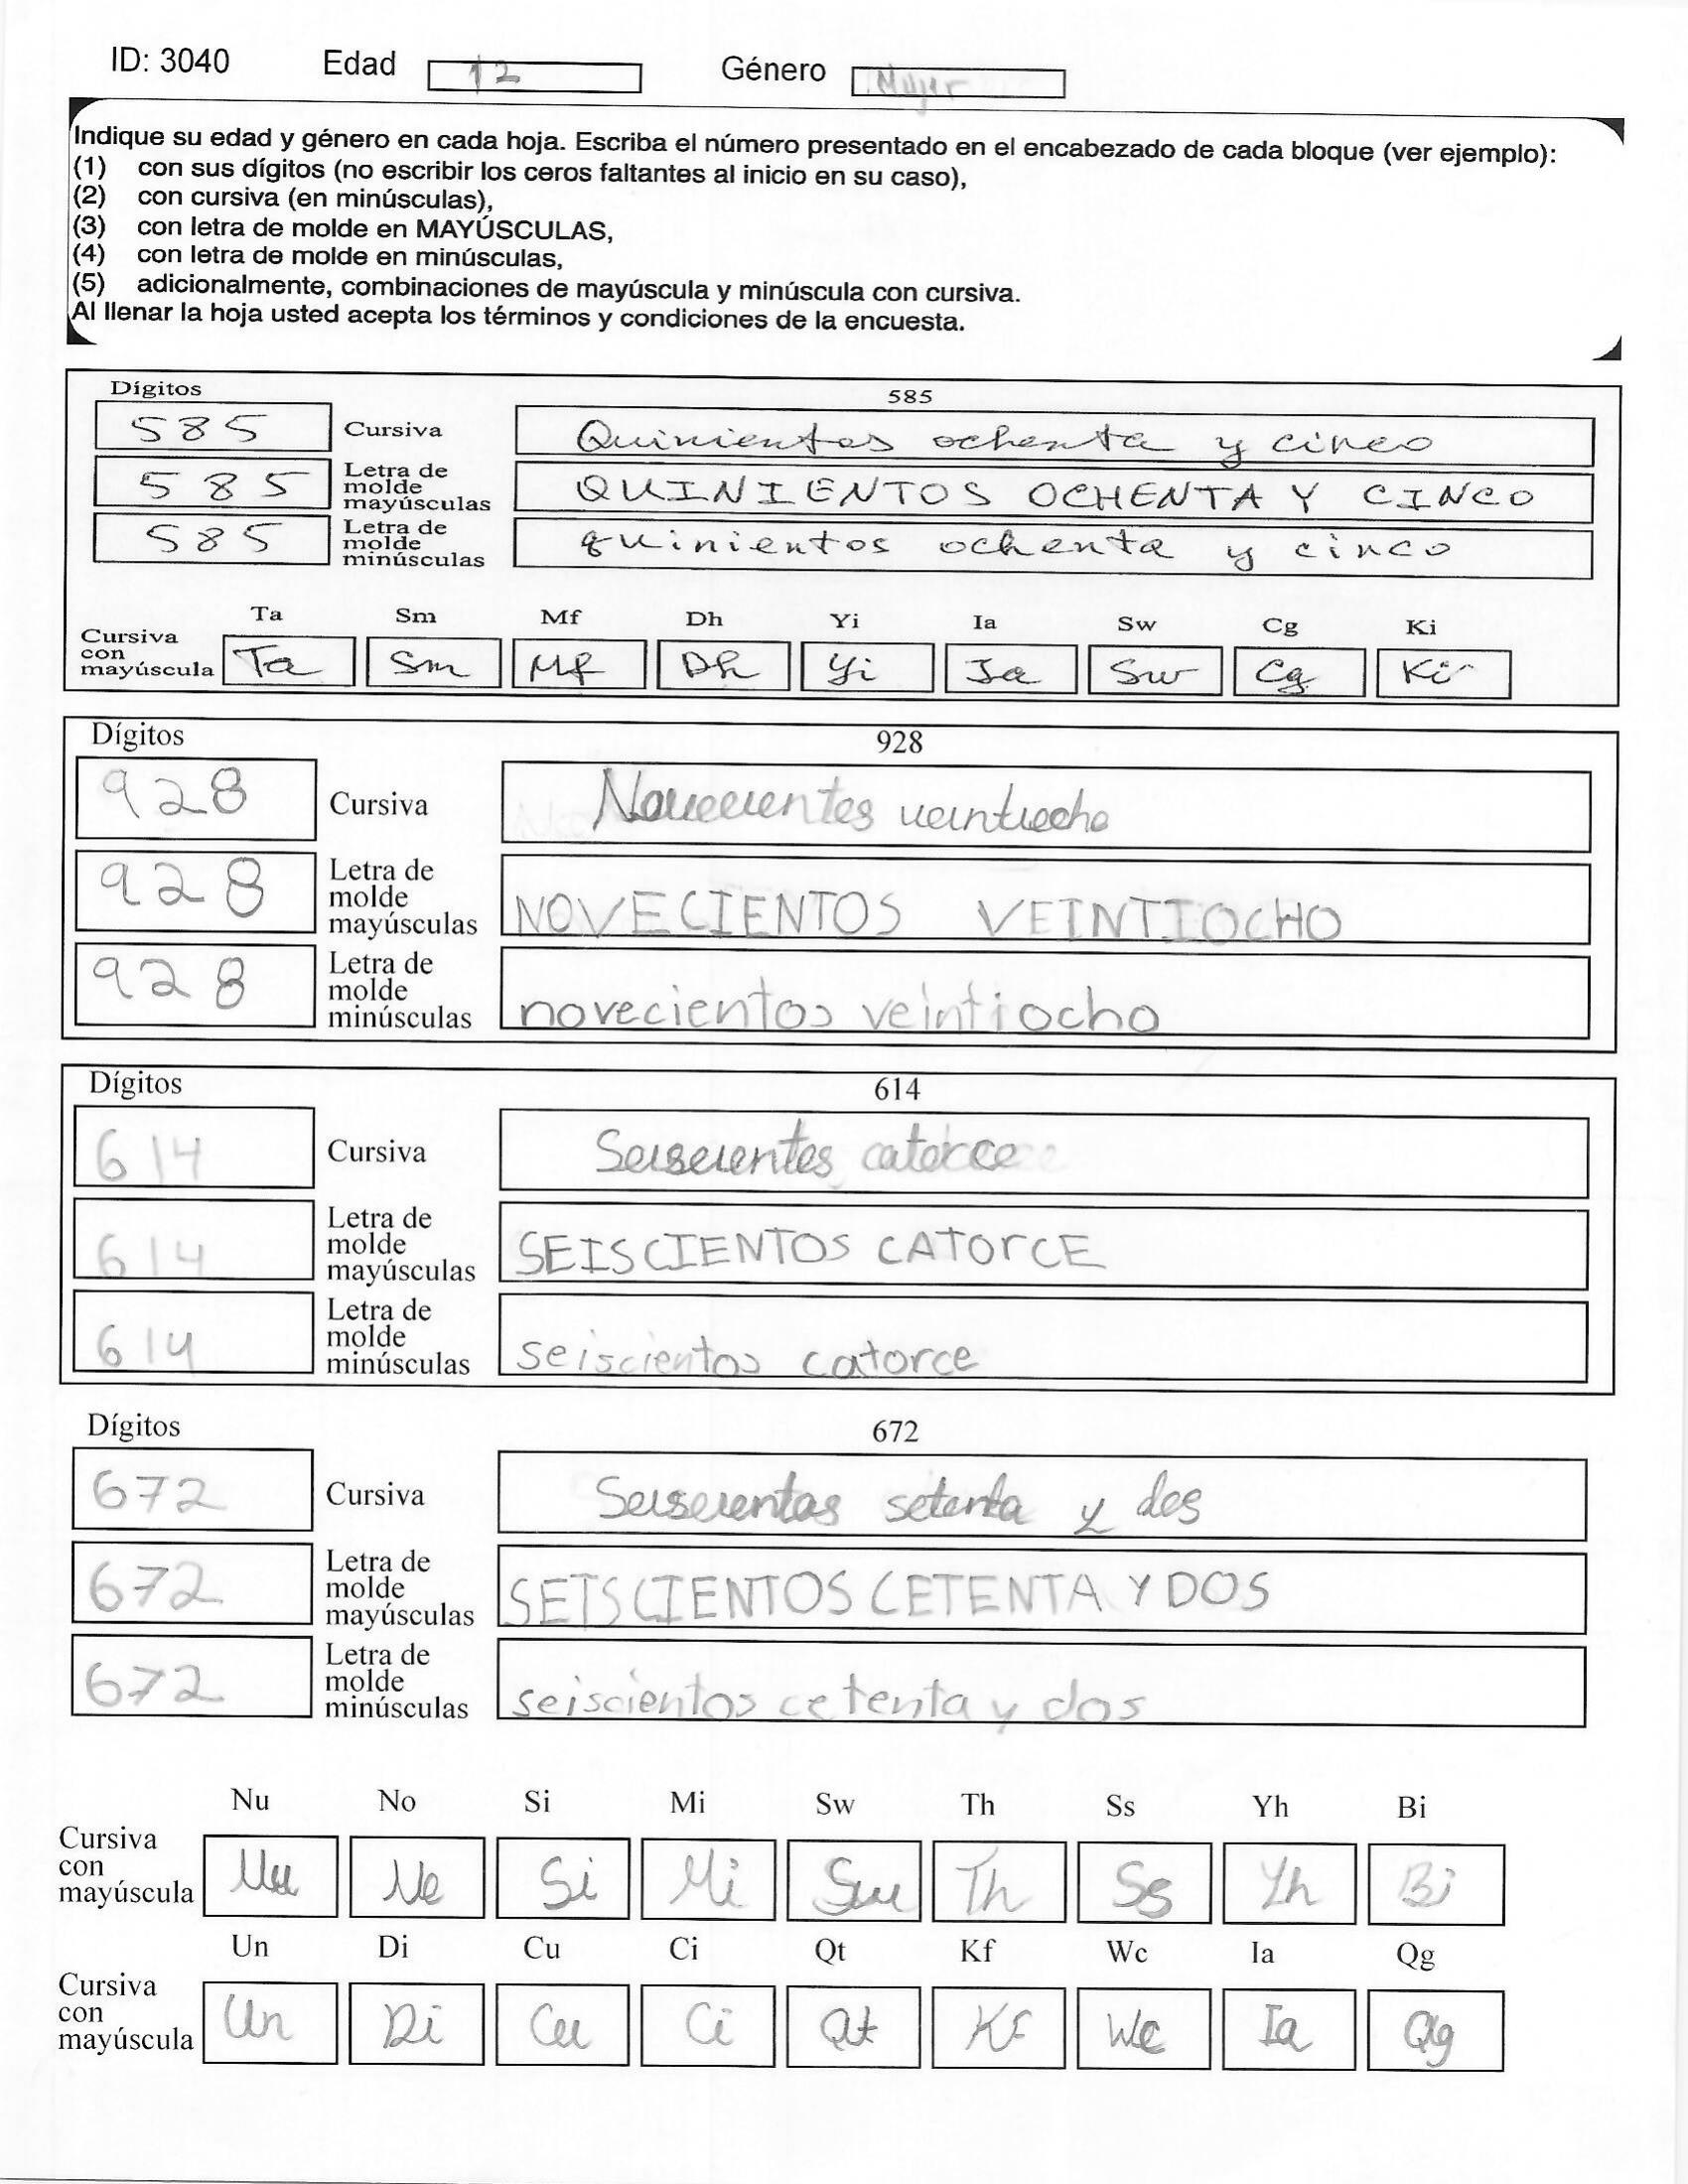 ID: 3040 Edad 12 Género Mujer
Indique su edad y género en cada hoja. Escriba el número presentado en el encabezado de cada bloque (ver ejemplo):
(1) con sus dígitos (no escribir los ceros faltantes al inicio en su caso),
(2) con cursiva (en minúsculas),
(3) con letra de molde en MAYÚSCULAS,
(4) con letra de molde en minúsculas,
(5) adicionalmente, combinaciones de mayúscula y minúscula con cursiva.
Al llenar la hoja usted acepta los términos y condiciones de la encuesta.
Dígitos 585
585 Cursiva Quinientos ochenta y cinco
585 Letra de molde mayúsculas QUINIENTOS OCHENTA Y CINCO
585 Letra de molde minúsculas quinientos ochenta y cinco
Ta Sm Mf Dh Yi Ia Sw Cg Ki
Cursiva con mayúscula Ta Sm Mf Dh Yi Ia Sw Cg Ki
Dígitos 928
928 Cursiva Novecientos veintiocho
928 Letra de molde mayúsculas NOVECIENTOS VEINTIOCHO
928 Letra de molde minúsculas novecientos veintiocho
Dígitos 614
614 Cursiva Seiscientos catorce
614 Letra de molde mayúsculas SEISCIENTOS CATORCE
614 Letra de molde minúsculas seiscientos catorce
Dígitos 672
672 Cursiva Seiscientos setenta y dos
672 Letra de molde mayúsculas SEISCIENTOS CETENTA Y DOS
672 Letra de molde minúsculas seiscientos cetenta y dos
Nu No Si Mi Sw Th Ss Yh Bi
Cursiva con mayúscula Nu No Si Mi Sw Th Ss Yh Bi
Un Di Cu Ci Qt Kf Wc Ia Qg
Cursiva con mayúscula Un Di Cu Ci Qt Kf Wc Ia Qg